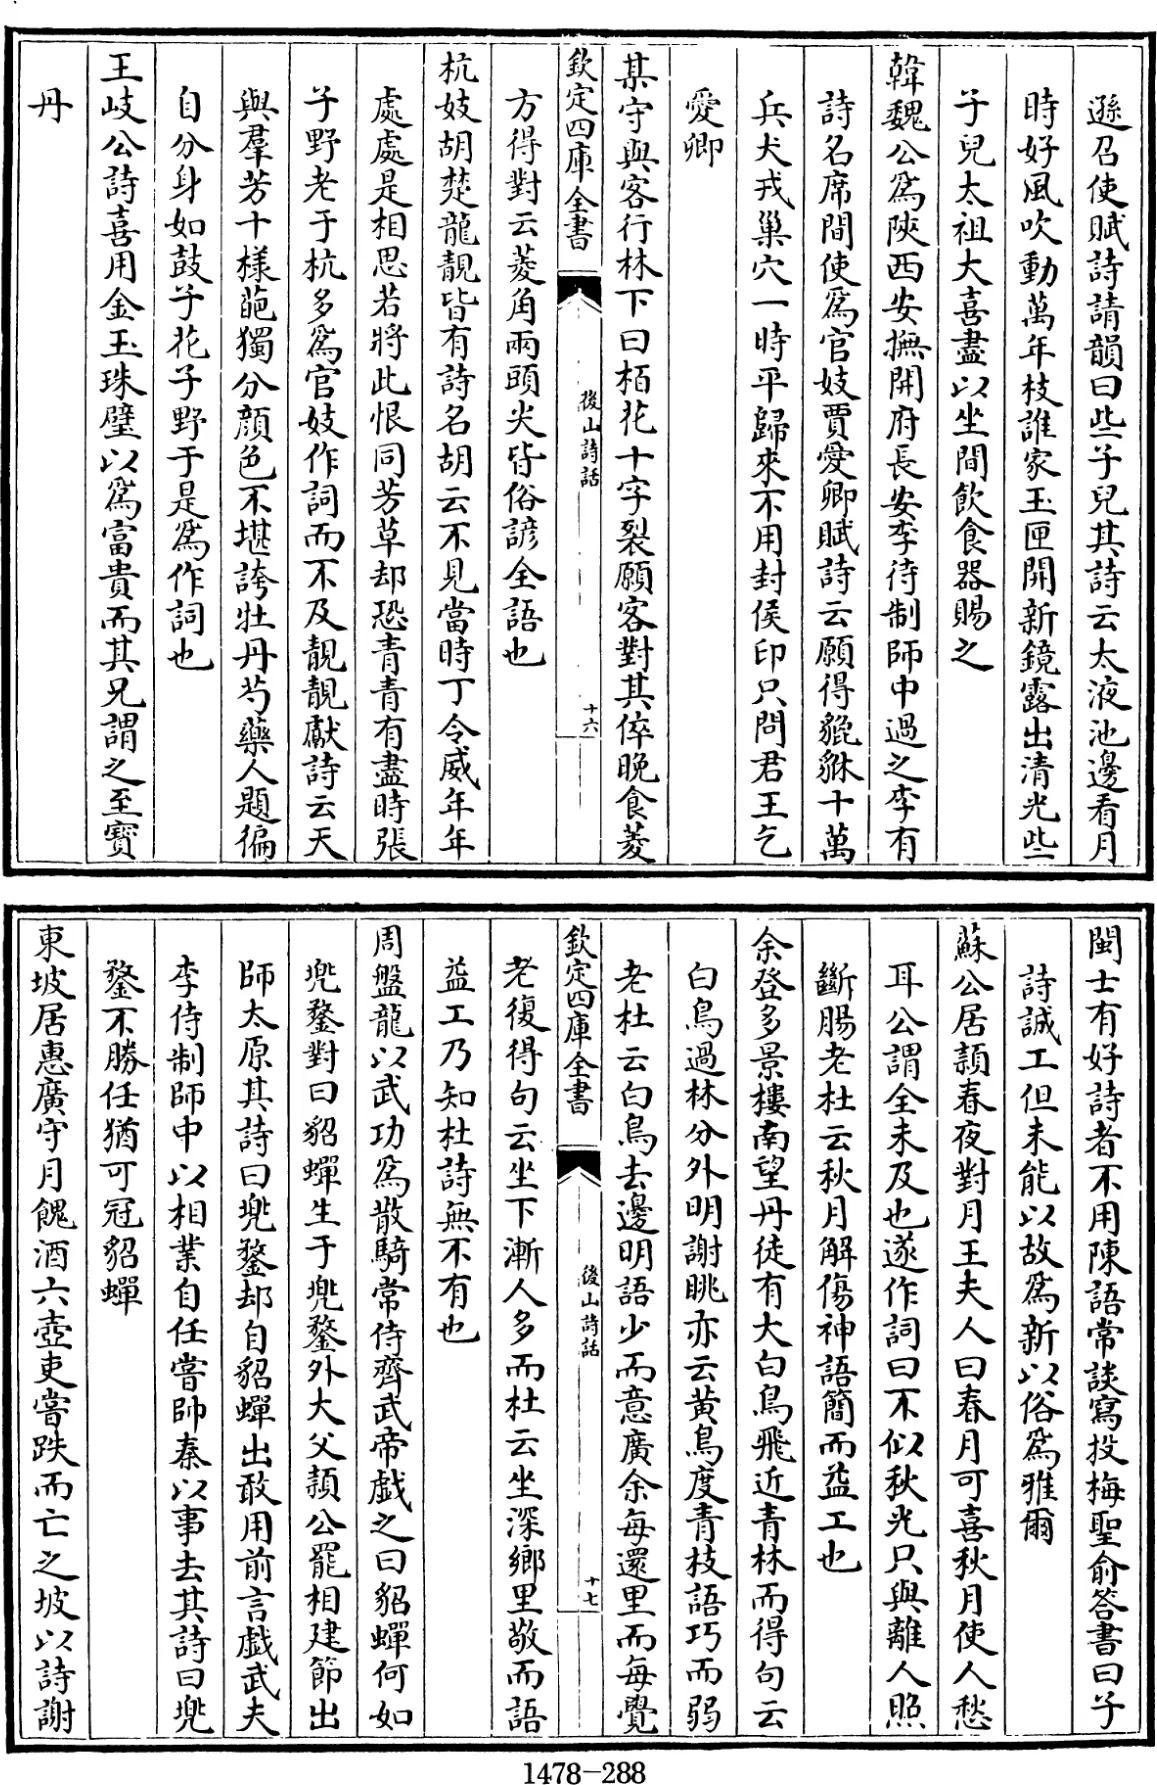 遜召使賦詩請韻曰些子兒其詩云太液池邊看月
時好風吹動萬年枝誰家玉匣開新鏡露出清光些
子兒太祖大喜盡以坐間飲食器賜之
韓魏公爲陜西安撫開府長安李待制師中過之李有
詩名席間使爲官妓賈愛卿賦詩云願得貔貅十萬
兵犬戎巢穴一時平歸來不用封侯印只問君王乞
愛卿
某守與客行林下曰栢花十字裂願客對其倅晚食菱
欽定四庫全書
後山詩話
十六
方得對云菱角兩頭尖皆俗諺全語也
杭妓胡楚龍靚皆有詩名胡云不見當時丁令威年年
處處是相思若將此恨同芳草却恐青青有盡時張
子野老于杭多爲官妓作詞而不及靚靚獻詩云天
與羣芳十様葩獨分顔色不堪誇牡丹芍藥人題徧
自分身如鼓子花子野于是爲作詞也
王岐公詩喜用金玉珠璧以爲富貴而其兄謂之至寳
丹
閩士有好詩者不用陳語常談寫投梅聖俞答書曰子
詩誠工但未能以故爲新以俗爲雅爾
蘇公居潁春夜對月王夫人曰春月可喜秋月使人愁
耳公謂全未及也遂作詞曰不似秋光只與離人照
斷腸老杜云秋月解傷神語簡而益工也
余登多景樓南望丹徒有大白鳥飛近青林而得句云
白鳥過林分外明謝眺亦云黄鳥度青枝語巧而弱
老杜云白鳥去邊明語少而意廣余每還里而每覺
欽定四庫全書
後山詩話
十七
老復得句云坐下漸人多而杜云坐深鄉里敬而語
益工乃知杜詩無不有也
周盤龍以武功爲散騎常侍齊武帝戯之曰貂蟬何如
兠鍪對曰貂蟬生于兠鍪外大父潁公罷相建節出
師太原其詩曰兠鍪却自貂蟬出敢用前言戯武夫
李侍制師中以相業自任嘗帥秦以事去其詩曰兠
鍪不勝任猶可冠貂蟬
東坡居惠廣守月餽酒六壺吏嘗跌而亡之坡以詩謝
1478-288